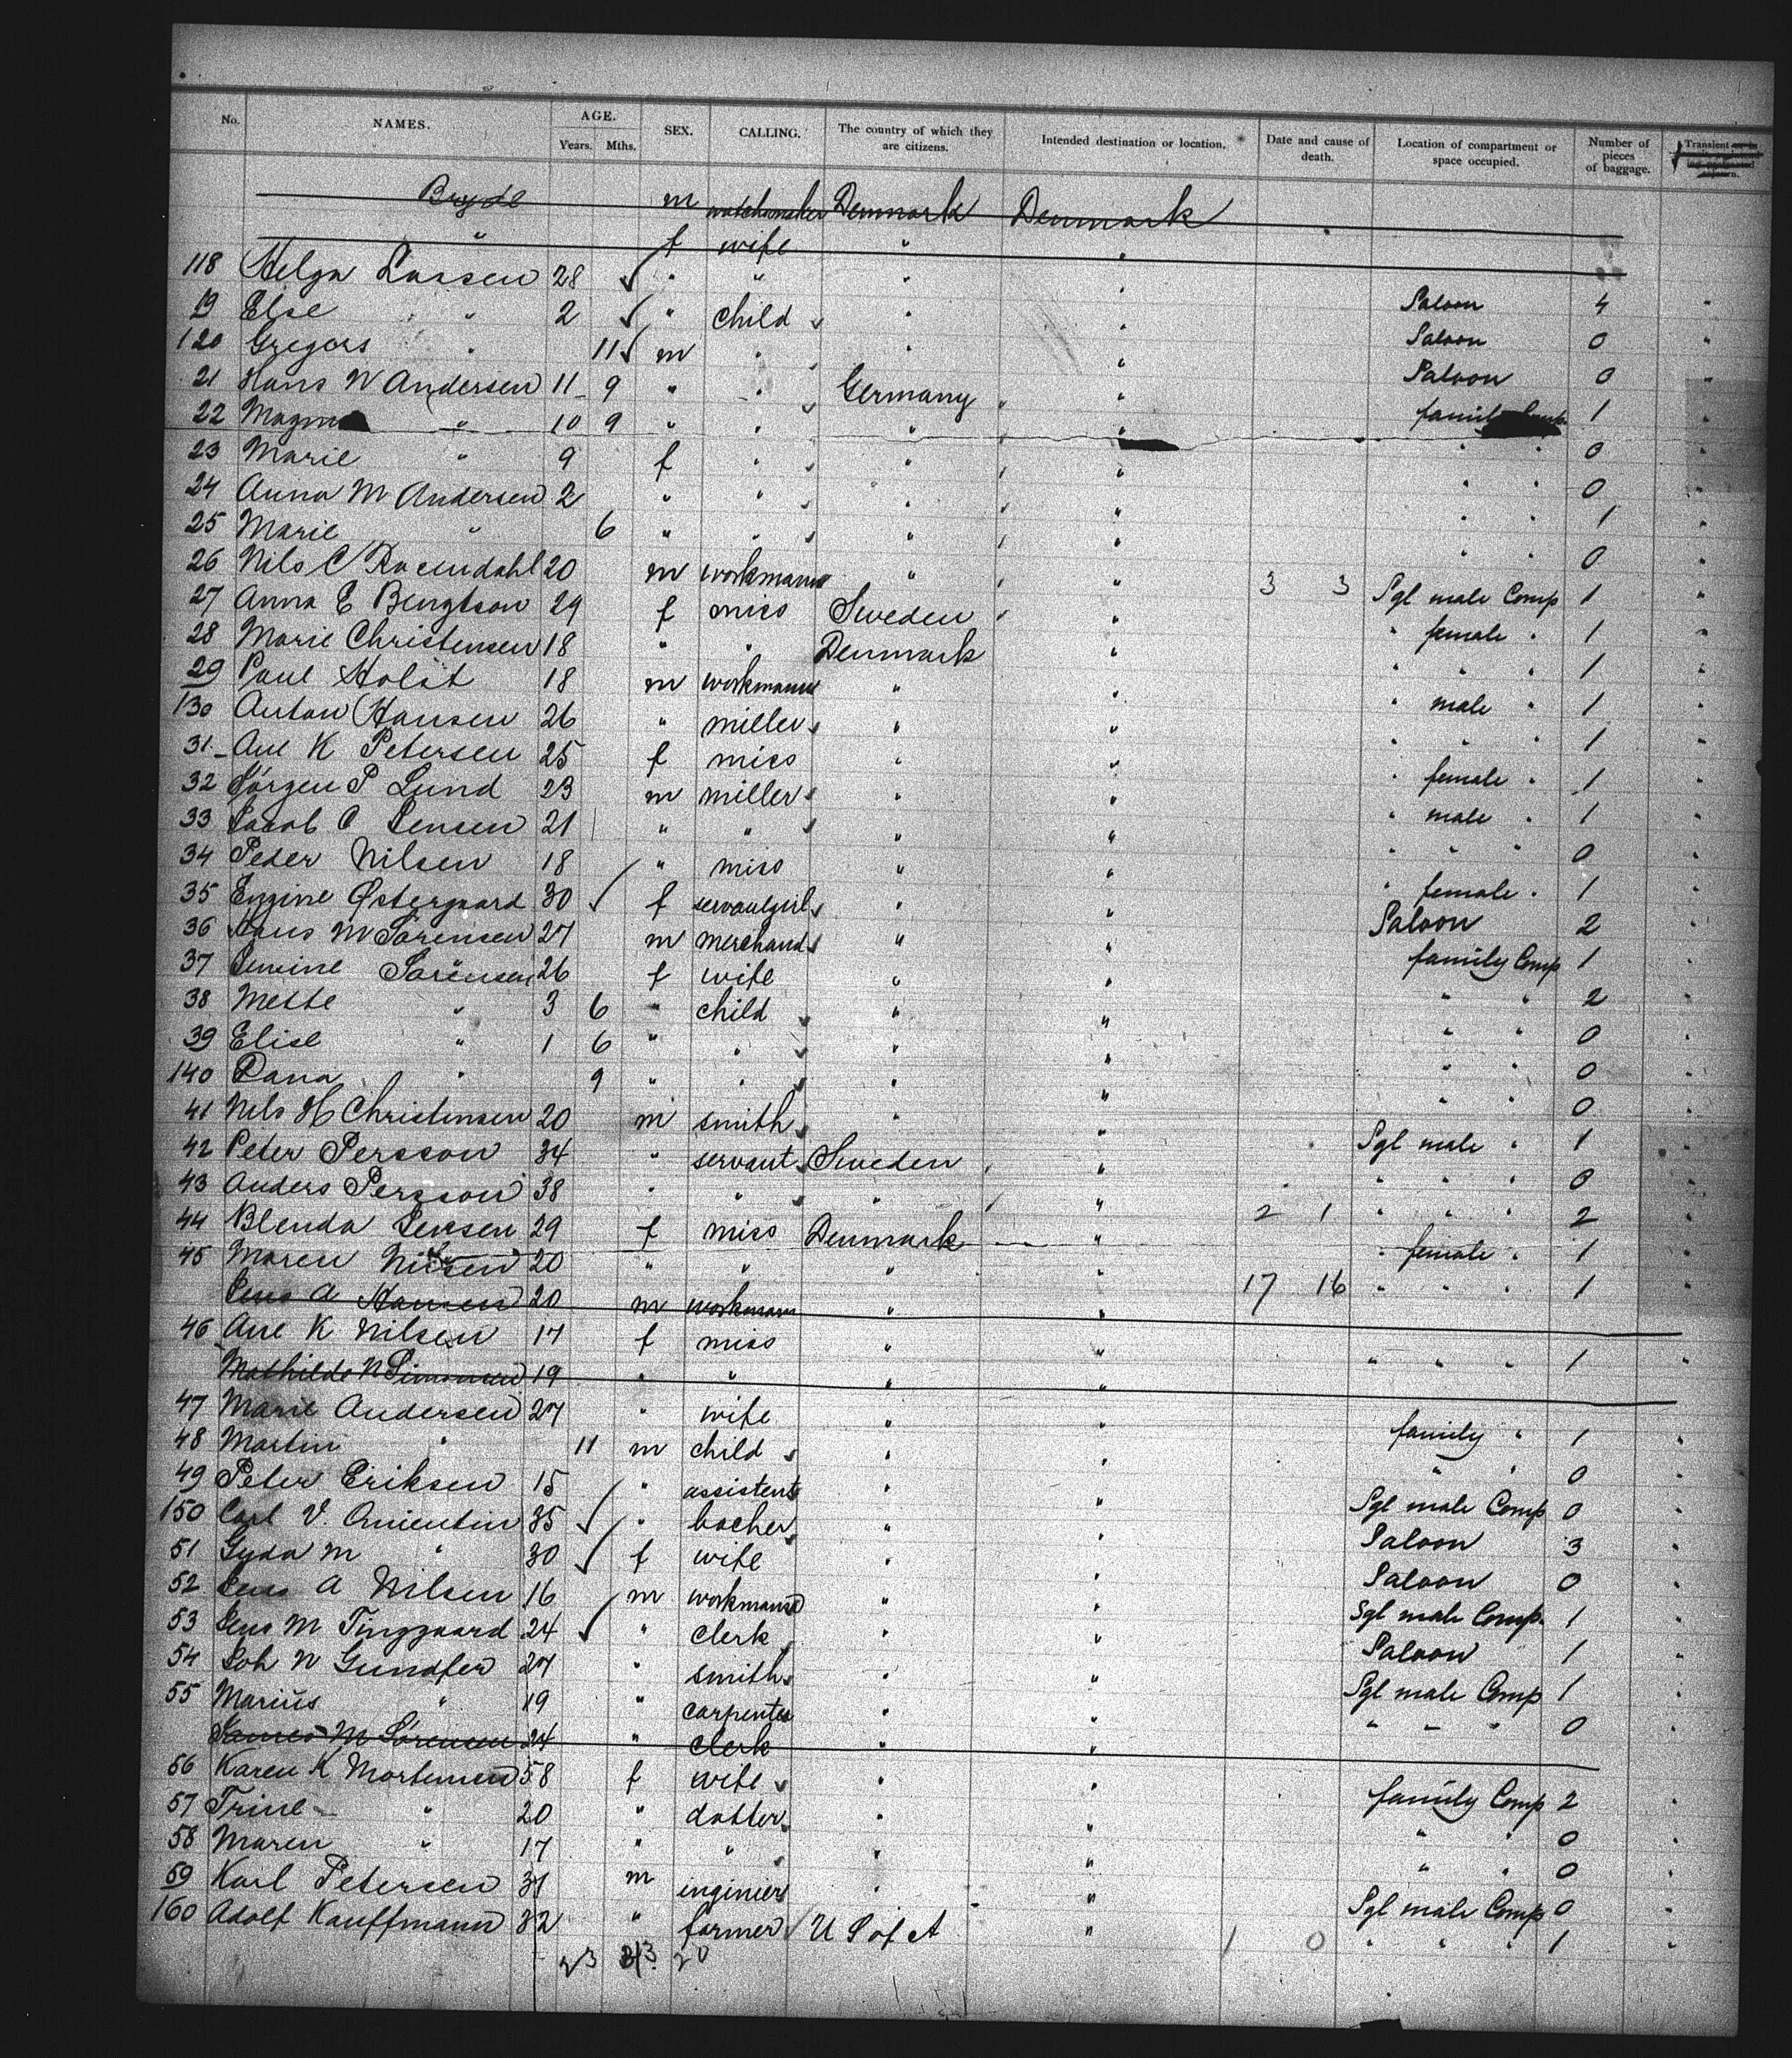 No. NAMES. AGE. Years. Mths. SEX. CALLING. The country of which they are citizens. Intended destination or location. Date and cause of death. Location of compartment or space occupied. Number of pieces of baggage. Transient
Bryde m watchmaker Denmark Denmark
" f wife " "
118 Helga Lassen 28 " " " " Saloon 4 "
19 Else " 2 " child " " Saloon 0 "
120 Gregers " 11 m " " " Saloon 0 "
21 Hans N Andersen 11 9 " " Germany " family Comp 1 "
22 " 10 9 " " " " " " 0 "
23 Marie " 9 f " " " " " 0 "
24 Anna M Andersen 2 " " " " " " 1 "
25 Marie " 6 " " " " " " 0 "
26 Nils C 20 m workmann " " 3 3 Sgl male Comp 1 "
27 Anna E Bengtson 29 f miss Sweden " " female " 1 "
28 Marie Christensen 18 " " Denmark " " " " 1 "
29 Paul Holst 18 m workmann " " " male " 1 "
130 Anton Hansen 26 " miller " " " " " 1 "
31 Ane K Petersen 25 f miss " " " female " 1 "
32 Jörgen P Lund 23 m miller " " " male " 1 "
33 Jacob C Jensen 21 " " " " " " " 0 "
34 Peder Nilsen 18 " miss " " " female " 1 "
35 Engine Østergaard 30 f servantgirl " " Saloon 2 "
36 Hans M Sørensen 27 m merchand " " family Comp 1 "
37 Jensine Sørensen 26 f wife " " " " 2 "
38 Mette " 3 6 " child " " " " 0 "
39 Elise " 1 6 " " " " " " 0 "
140 Dana " 9 " " " " " " 0 "
41 Nils H Christensen 20 m smith " " Sgl male " 1 "
42 Peter Persson 34 " servant Sweden " " " " 0 "
43 Anders Persson 38 " " " " 2 1 " " " 2 "
44 Blenda Jensen 29 f miss Denmark " " female " 1 "
45 Maren Nilsen 20 " " " " 17 16 " " " 1 "
Jens A Hansen 20 m workmann " "
46 Ane K Nilsen 17 f miss " " " " " 1 "
Mathilde N Simonsen 19 " " " "
47 Marie Andersen 27 " wife " " family " 1 "
48 Martin " 11 m child " " " " 0 "
49 Peter Eriksen 15 " assistent " " Sgl male Comp 0 "
150 Carl V. 35 " bocher " " Saloon 3 "
51 Gyda M " 30 f wife " " Saloon 0 "
52 Jens A Nilsen 16 m workmann " " Sgl male Comp 1 "
53 Jens M Tinggaard 24 " clerk " " Saloon 1 "
54 Joh N 27 " smith " " Sgl male Comp 1 "
55 Marius " 19 " carpenter " " " " " 0 "
M Sørensen 24 " clerk " "
56 Karen K Mortensen 58 f wife " " family Comp 2 "
57 Trine " 20 " dotter " " " " 0 "
58 Maren " 17 " " " " " " 0 "
59 Karl Petersen 31 m inginier " " Sgl male Comp 0 "
160 Adolf Kauffmann 32 " farmer U S of A " 1 0 " " " 1 "
23 20